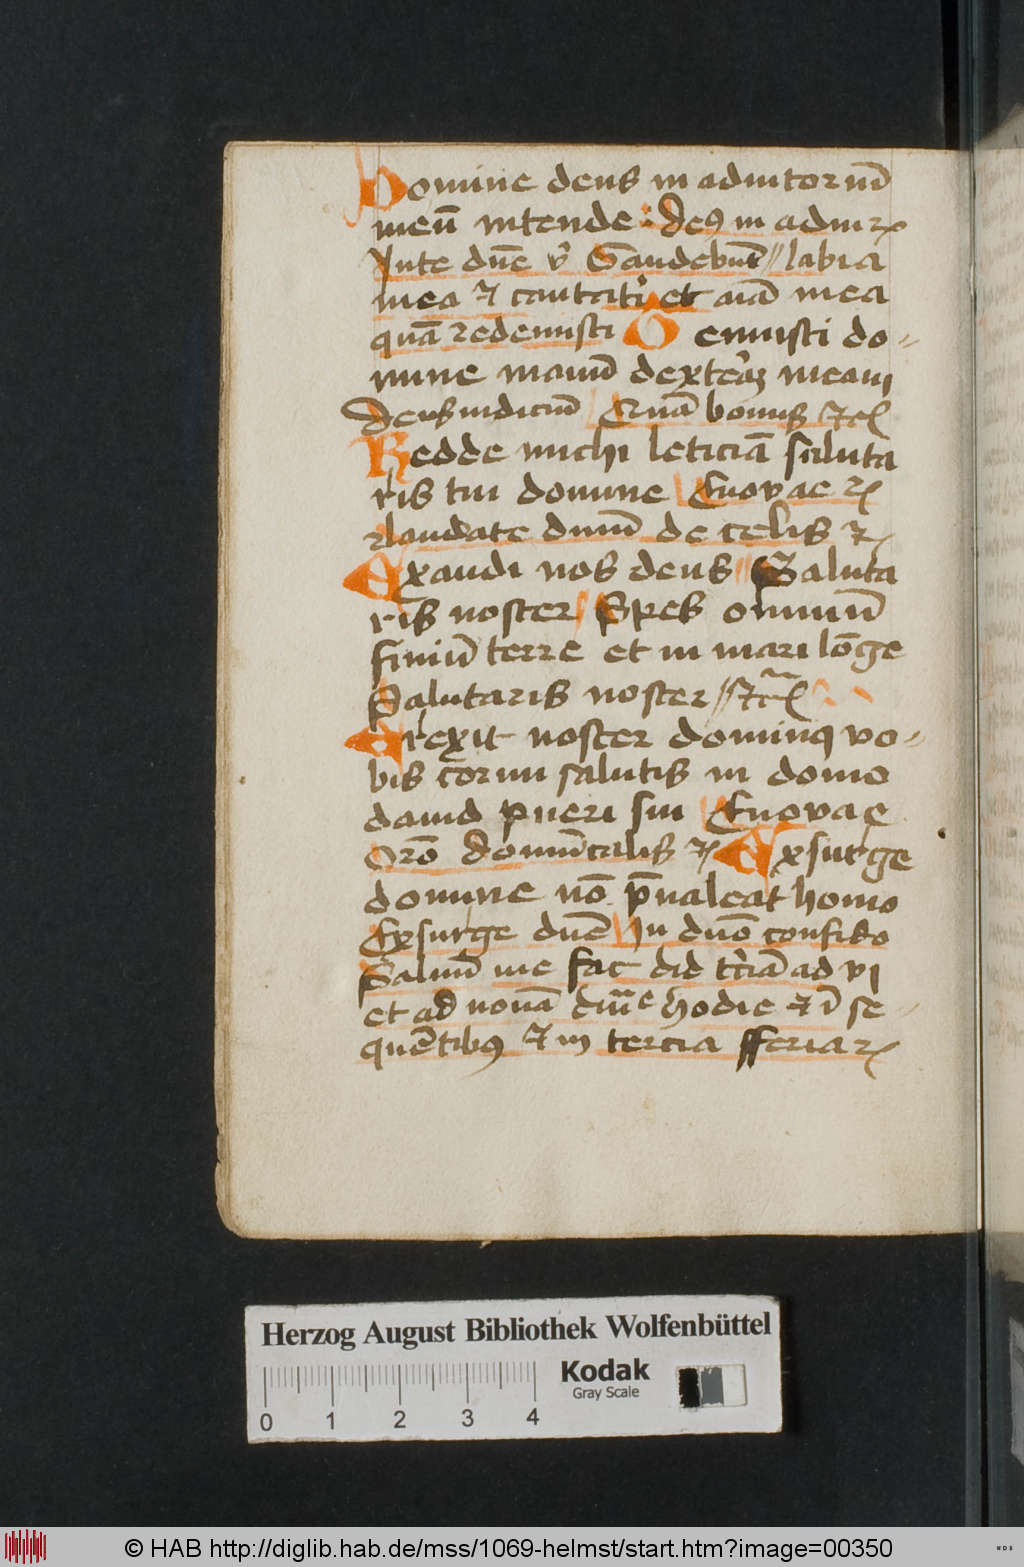 Domine deus in adiutoriū
meū intende : deꝰ in adiu
Inte dn̄e v̓ Gaudebūt // labia
mea ⁊ cantati et aīa mea
quā redemisti Tenuisti do-
mine manū dexterā meam
deus iudiciū Quā bonus ⁊cͤ
Redde michi leticiā saluta
ris tui domine Euovae
laudate dnm̄ de celis ⁊
Exaudi nos deus // Saluta
ris noster // Spes omniū
finiū terre et in mari lōge
Salutaris noster // ⁊c̄
Erexit noster dominꝰ vo-
bis cornu salutis in domo
dauid pueri sui Euovae
Orō domīcalis ⁊ Exsurge
domine nō p̄ualeat homo
Exsurge dn̄e In dn̄o confido
Saluū me fac did t̓ciā ad vj
et ad nonā hodie ⁊ ī se-
quētibꝰ ⁊ in tercia fferia
Herzog August Bibliothek Wolfenbüttel
Kodak
Gray Scale
0 1 2 3 4
© HAB http://diglib.hab.de/mss/1069-helmst/start.htm?image=00350